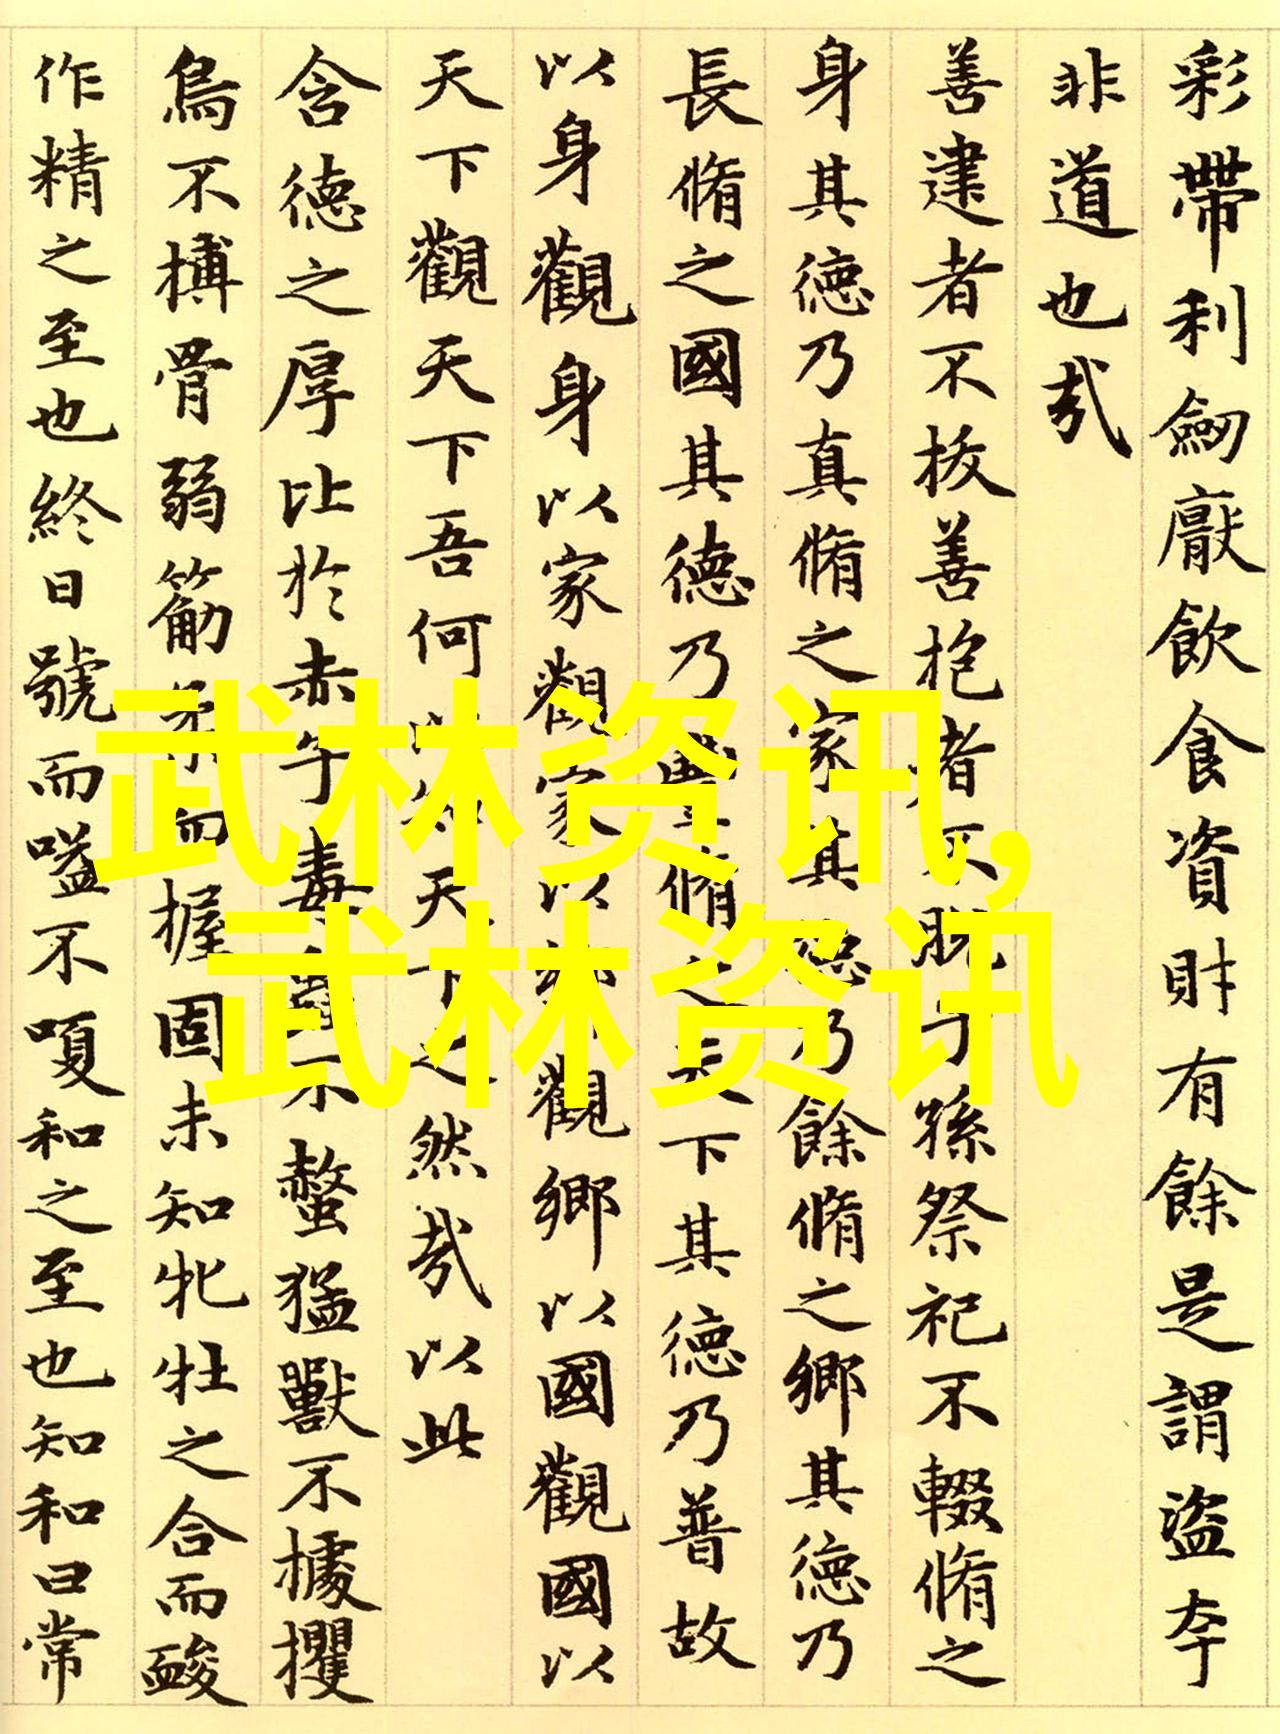 彩帶利劒厭飲食資財有餘是謂盜夸
非道也哉
善建者不拔善抱者不脫子孫祭祀不輟脩之
身其德乃真脩之家其德乃餘脩之鄉其德乃
長脩之國其德乃豐脩之天下其德乃普故
以身觀身以家觀家以鄉觀鄉以國觀國以
天下觀天下吾何以知天下之然哉以此
含德之厚比於赤子毒蟲不螫猛獸不據攫
鳥不搏骨弱筋柔而握固未知牝牡之合而䘒
作精之至也終日號而嗌不嗄和之至也知和曰常
武林资讯,
武林资讯